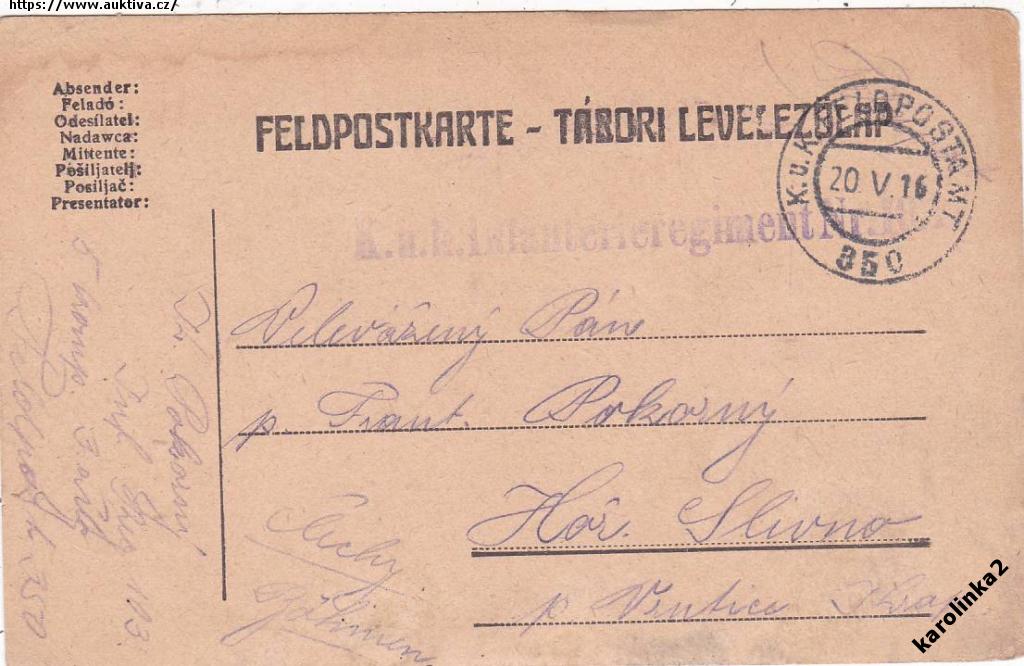 https://www.auktiva.cz/
Absender:
Feladó:
Odesílatel:
Nadawca:
Mittente:
Pošiljatelj:
Posiljač:
Presentator:
FELDPOSTKARTE - TÁBORI LEVELEZŐLAP
K. u. K. FELDPOSTAMT
20 V. 16
350
K.u.k. Infanterieregiment Nr.
Velevážený Pán
p. Frant. Pokorný
Hoř. Slivno
p Vrutice
Čechy
Böhmen
Fr. Pokorný
103
5 komp. 3 zug
Feldpost N 350
karolinka2